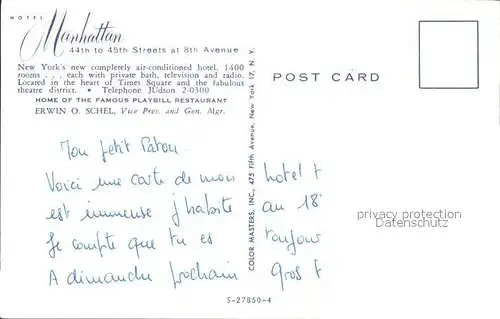 HOTEL
Manhattan
44th to 45th Streets at 8th Avenue
New York's new completely air-conditioned hotel. 1400
rooms . . . each with private bath, television and radio.
Located in the heart of Times Square and the fabulous
theatre district. • Telephone JUdson 2-0300
HOME OF THE FAMOUS PLAYBILL RESTAURANT
ERWIN O. SCHEL, Vice Pres. and Gen. Mgr.
COLOR MASTERS, INC., 475 Fifth Avenue, New York 17, N. Y.
POST CARD
Mon petit Patou
Voici une carte de mon hotel t
est immense j'habite au 18
Je compte que tu es toujour
A dimanche prochain gros t
privacy protection
Datenschutz
S-27850-4